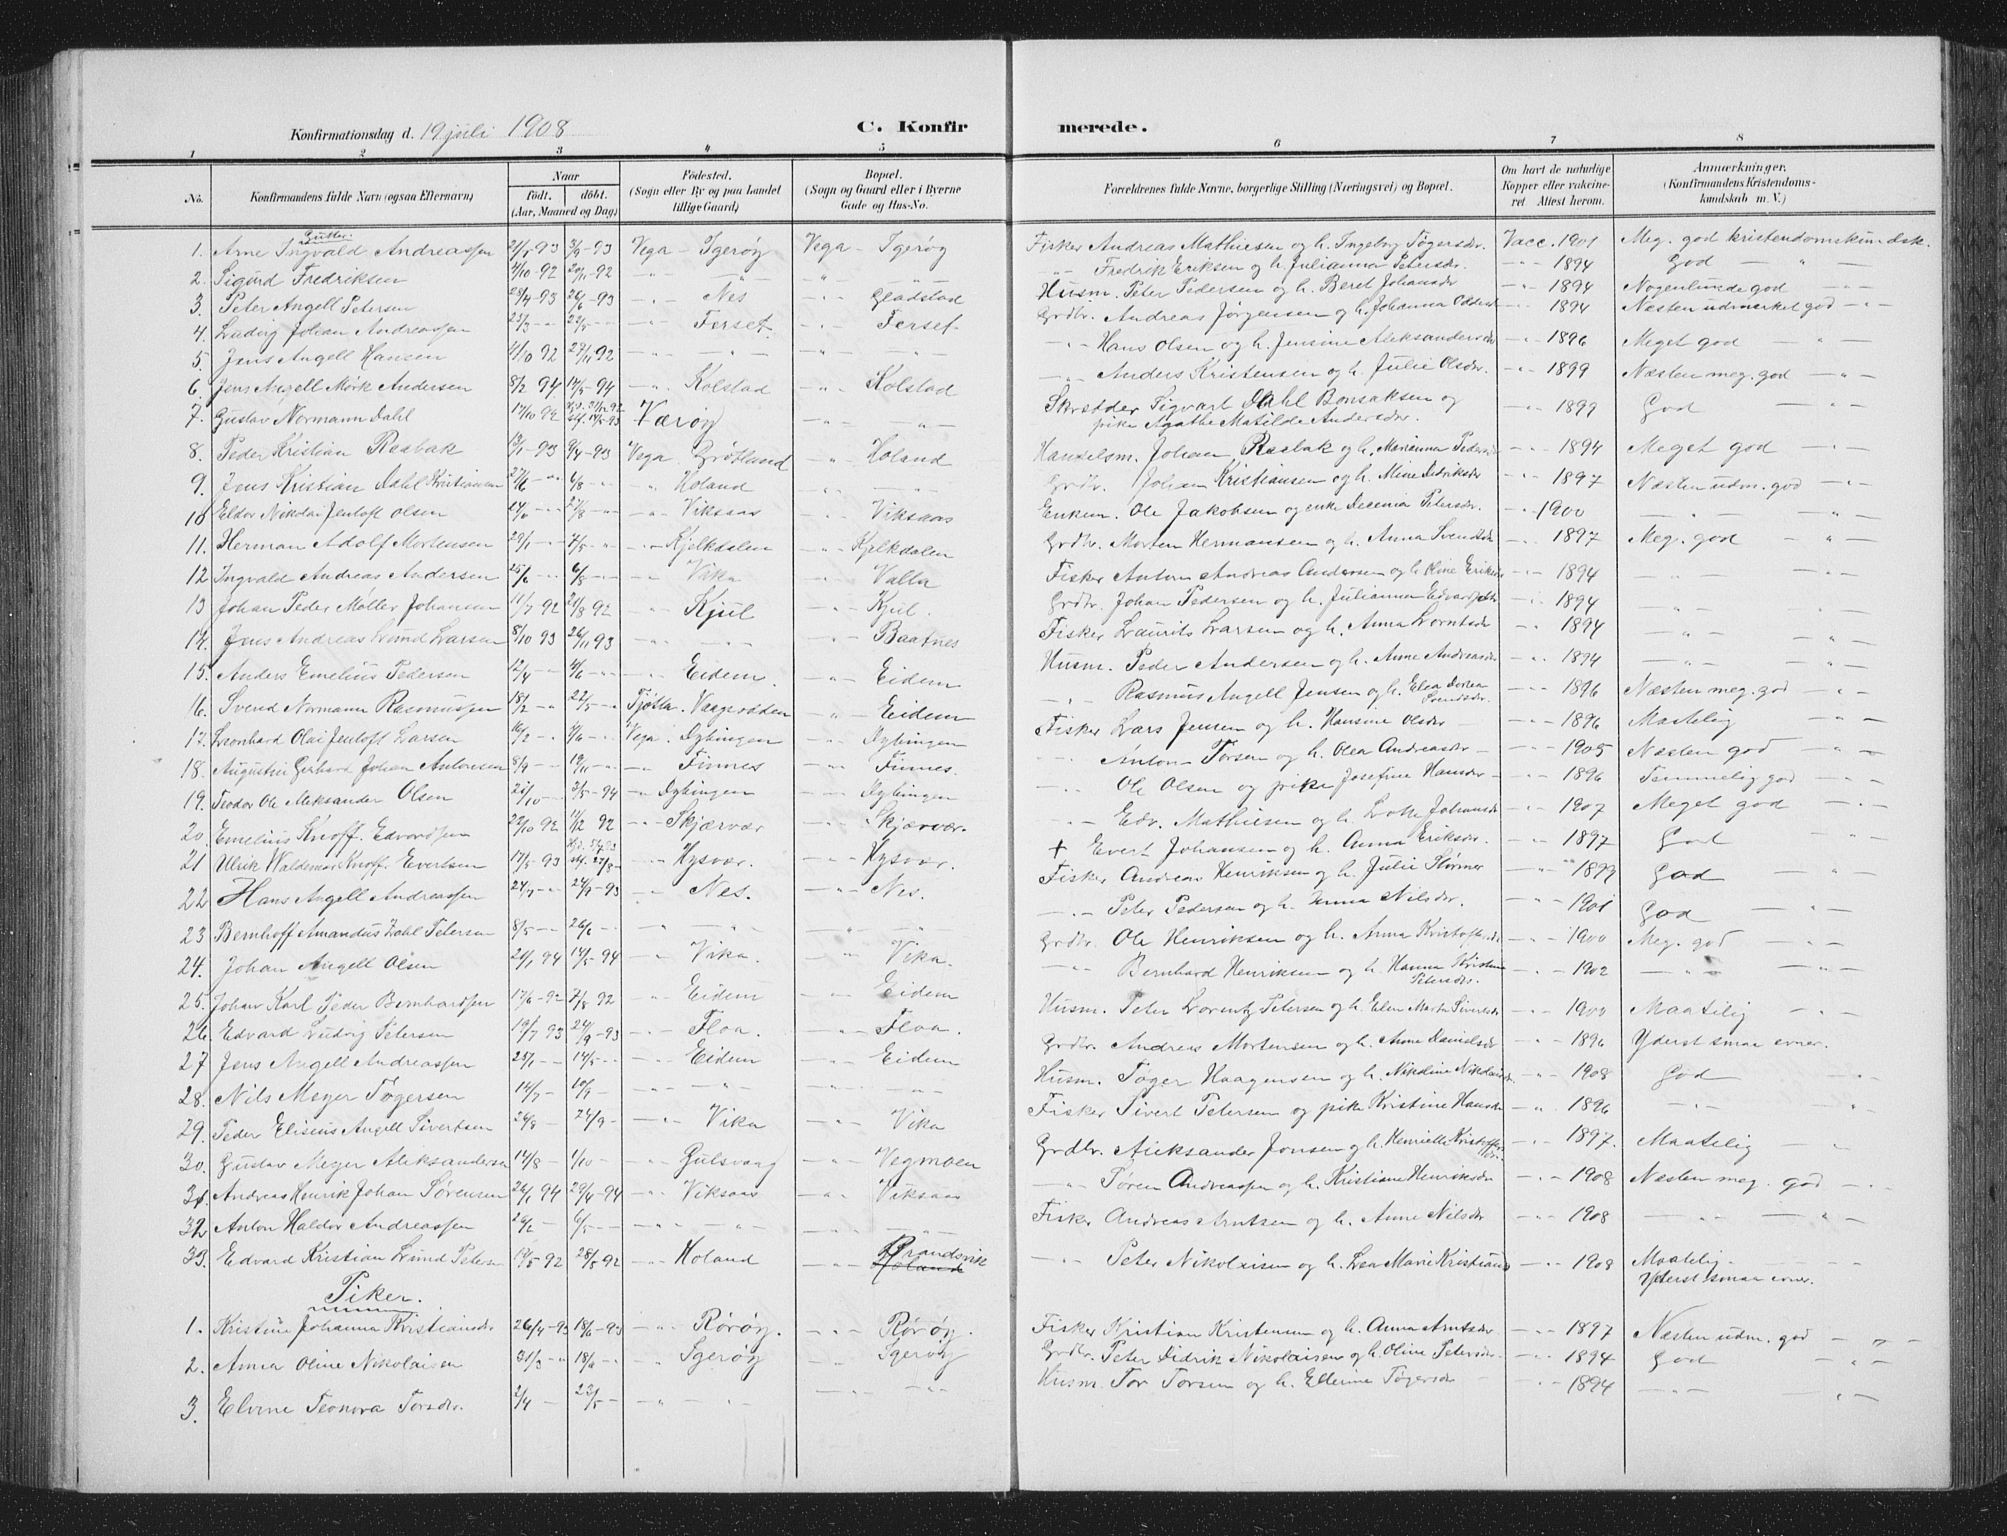 Konfirmationsdag d. 19 juli 1908
C. Konfirmerede.
1 2 3 4 5 6 7 8
No. Konfirmandens fulde Navn (ogsaa Efternavn) Naar født. døbt. (Aar, Maaned og Dag) Fødested. (Sogn eller By og paa Landet tillige Gaard) Bopæl. (Sogn og Gaard eller i Byerne Gade og Hus-No. Forældrenes fulde Navne, borgerlige Stilling (Næringsvei) og Bopæl. Om havt de naturlige Kopper eller vakcineret Attest herom. Anmærkninger. (Konfirmandens Kristendomskundskab m. V.)
Gutter.
1. Arne Ingvald Andreassen 21/5 93 3/9 -93 Vega - Igerøy Vega - Igerøy Fisker Andreas Mathiesen og h. Ingeborg Tøgersdr. Vacc. 1901 Meg. god kristendomskundsk.
2. Sigurd Fredriksen 4/10 -92 20/11 -92 -"- -"- " -"- -"- Fredrik Eriksen og h. Julianna Petersdr. -"- 1894 God - " -
3. Peter Angell Petersen 28/4 -93 26/6 -93 -"- Nes -"- Gladstad Husm. Peter Pedersen og h. Beret Johansdr -"- 1894 Nogenlunde god -"-
4. Ludvig Johan Andreassen 25/3 -"- 22/5 -"- -"- Ferset -"- Ferset Grdbr. Andreas Jørgensen og h. Johanna Oddersdr -"- 1894 Næsten udmerket god -"-
5. Jens Angell Hansen 4/10 92 27/11 92 -"- -"- -"- -"- -"- Hans Olsen og h. Jensine Aleksandersdr -"- 1896 Meget god - " -
6. Jens Angell Mørk Andersen 8/2 94 14/5 -94 -"- Kolstad -"- Kolstad -"- Anders Kristensen og h. Julie Olsdr. -"- 1899 Næsten meg. god -"-
7. Gustav Normann Dahl 17/10 92 Hjd. 31/12 92 Stf. 14/5 -93 Værøy -"- -"- Skrædder Sigvart Dahl Bonsaksen og pike Agathe Matilde Andersdr. -"- 1899 God -"-
8. Peder Kristian Rasbak 13/1 -93 9/4 -93 Vega Grøtlund " Holand Handelsm. Johan Rasbak og h. Marianna Pedersdr -"- 1894 Meget god -"-
9. Jens Kristian Dahl Kristiansen 27/6 -"- 6/8 -"- " Holand " -"- Grdbr. Johan Kristiansen og h. Mine Didriksdr -"- 1897 Næsten udm. god -"-
10 Eldor Nikolai Jentoft Olsen 27/8 -"- -"- Viksaas " Viksaas Enkem. Ole Jakobsen og enke Decenia Petersdr. -"- 1900 -"- -"-
11. Herman Adolf Mortensen 29/1 -"- 7/5 " -"- Kjelkdalen -"- Kjelkdalen Grdbr. Morten Hermansen og h. Anna Svendsdr -"- 1897 Meg. god -"-
12 Ingvald Andreas Andersen 25/6 -"- 6/8 -"- -"- Vika " Valla Fisker Anton Andreas Andersen og h. Oline Eriksdr -"- 1894 -"- -"-
13 Johan Peder Møller Johansen 11/7 92 21/8 92 -"- Kjul -"- Kjul. Grdbr. Johan Pedersen og h. Julianna Edvardsdr -"- 1894 -"- -"-
14. Jens Andreas Lund Larsen 8/10 93 26/11 93 -"- -"- -"- Baatnes Fisker Laurits Larsen og h. Anna Lorntsdr -"- 1894 -"- -"-
15. Anders Emelius Pedersen 12/4 -"- 4/6 -"- -"- Eidem. -"- Eidem Husm. Peder Andersen og h. Anne Andreasdr -"- 1894 -"- -"-
16. Svend Normann Rasmussen 18/2 -"- 22/5 -"- Tjøtta. Vaagsodden " Eidem " Rasmus Angell Jensen og h. Elea Dortea Svendsdr. -"- 1896 Næsten meg. god -"-
17. Leonhard Olai Jentoft Larsen 16/2 -"- 4/6 -"- Vega. Dybingen " Dybingen Fisker Lars Jensen og h. Hansine Olsdr -"- 1896 Maatelig -"-
18. Augustin Gerhard Johan Antonsen 8/9 -"- 19/11 -"- -"- Finnes " Finnes. -"- Anton Torsen og h. Olea Andreasdr -"- 1905 Næsten god -"-
19. Teodor Ole Aleksander Olsen 22/10 -"- 3/5 -94 -"- Dybingen -"- Dybingen -"- Ole Olsen og pike Josefine Hansdr -"- 1896 Temmelig god -"-
20. Emelius Knoff Edvardsen 22/10 92 11/12 92 -"- Skjærvær -"- Skjærvær. -"- Edv. Mathiesen og h. Lotte Johansdr -"- 1907 Meget god -"-
21 Ulrik Waldemar Knoff Evertsen 17/5 -93 27/8 - -"- Hysvær. -"- Hysvær. + Evert Johansen og h. Anna Eriksdr. -"- 1897 God "
22 Hans Angell Andreassen 24/7 -"- 24/9 -93 " Nes. -"- Nes. Fisker Andreas Henriksen og h. Julie Størmer -"- 1899 God -"-
23 Bernhoff Amandus Dahl Petersen 8/5 -"- 26/6 -"- -"- " " " -"- Peter Pedersen og h. Anna Nilsdr. -"- 1901 God -"-
24. Johan Angell Olsen 21/1 94 14/5 -94 -"- Vika. " Vika. Grdbr. Ole Henriksen og h. Anna Kristofersdr -"- 1900 Meg. god -"-
25. Johan Karl Peder Bernhardsen 17/6 -92 7/8 92 -"- Eidem -"- Eidem -"- Bernhard Henriksen og h. Hanna Kristine Petersdr. -"- 1902 -"- -"-
26. Edvard Ludvig Petersen 19/7 93 24/9 -93 -"- Floa. -"- Floa. Husm. Peter Lorentz Petersen og h. Elen Marta Sivertsdr -"- 1900 Maatelig -"-
27 Jens Angell Andreassen 25/1 -"- 14/5 -"- -"- Eidem -"- Eidem Grdbr. Andreas Mortensen og h. Anne Danielsdr -"- 1896 Yderst smaa evner.
28. Nils Meyer Tøgersen 14/7 -"- 10/9 -"- -"- -"- " -"- Husm. Tøger Haagensen og h. Nikoline Nikolaisdr -"- 1908 God "
29. Peder Eliseus Angell Sivertsen 24/8 -"- 24/9 - -"- Vika -"- Vika Fisker Sivert Petersen og pike Kristine Hansdr -"- 1896 -"- "
30. Gustav Meyer Aleksandersen 14/8 -"- 1/10 -"- -"- Gulsvaag -"- Vegmoen Grdbr. Aleksander Jonsen og h. Henriette Kristoffersdr. -"- 1897. Maatelig "
31. Andreas Henrik Johan Sørensen 26/1 94 29/4 -94 -"- Viksaas " Viksaas -"- Søren Andreassen og h. Kristiane Henriksdr -"- 1908 Næsten meg. god -"-
32 Anton Haldor Andreassen 26/2 -"- 6/5 -"- -"- -"- " " Fisker Andreas Arntsen og h. Anne Nilsdr -"- 1908 -"- -"-
33. Edvard Kristian Lund Petersen 19/5 92 28/5 92 -"- Holand -"- Brandsvik Holand -"- Peter Nikolaisen og h. Lea Marie Kristiansdr -"- 1908 Maatelig. Yderst smaa evner.
Piker.
1. Kristine Johanna Kristiansdr 26/4 -93 18/6 -93 -"- Rørøy. -"- Rørøy. Fisker Kristian Kristensen og h. Anna Arntsdr -"- 1897 Næsten udm. god -"-
2. Anna Oline Nikolaisen 31/3 -"- 18/6 -"- -"- Igerøy " Igerøy Grdbr. Peter Didrik Nikolaisen og h. Oline Petersdr. -"- 1894 God -"-
3. Elvine Teonora Torsdr. 2/4 - 23/5 - -"- -"- -"- -"- Husm. Tor Torsen og h. Ellerine Tøgersdr -"- 1894 -"- -"-